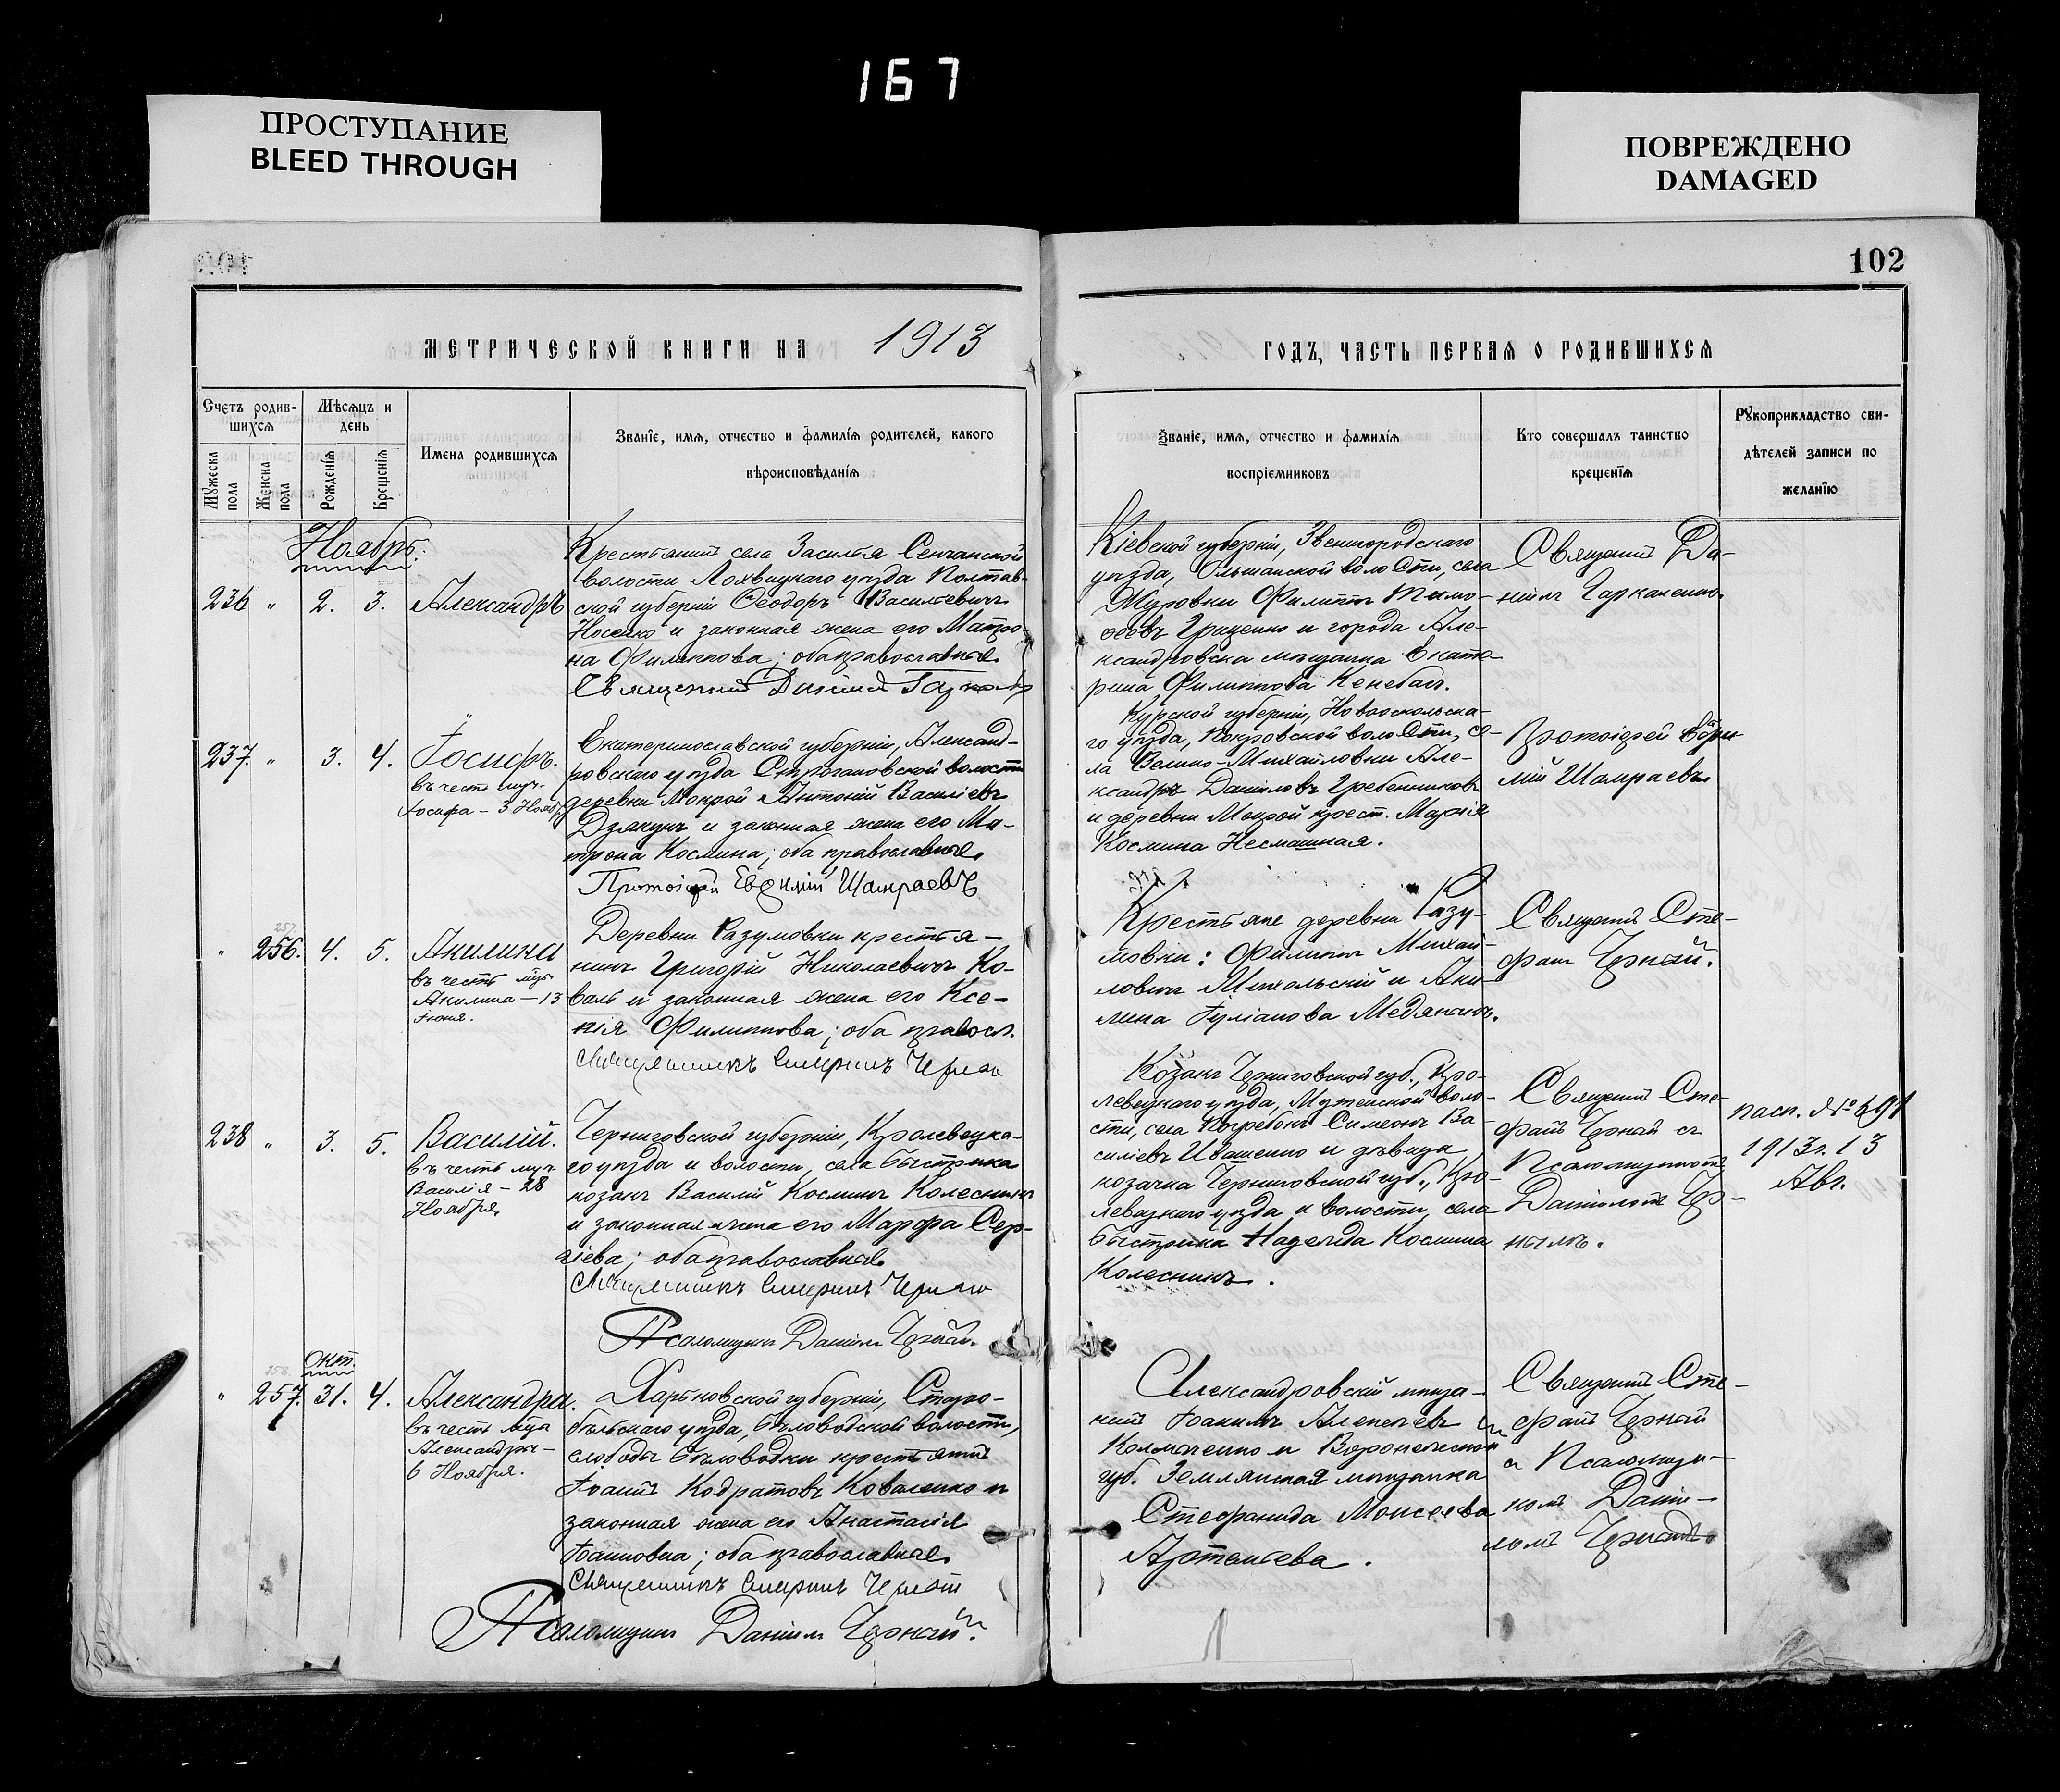 167
ПРОСТУПАНИЕ
BLEED THROUGH
ПОВРЕЖДЕНО
DAMAGED
102
МЕТРИЧЕСКОЙ КНИГИ НА 1913
ГОДЪ, ЧАСТЬ ПЕРВАЯ О РОДИВШИХСЯ
Счетъ родив-
шихся
Мѣсяцъ и
день
Мужеска
пола
Женска
пола
Рожденія
Крещенія
Имена родившихся
Званіе, имя, отчество и фамилія родителей, какого
вѣроисповѣданія
Званіе, имя, отчество и фамилія
воспріемниковъ
Кто совершалъ таинство
крещенія
Рукоприкладство сви-
дѣтелей записи по
желанію
Ноябрь.
236 " 2. 3. Александръ
Крестьянинъ села Засилья Сенчанской
волости Лохвицкаго уѣзда Полтав-
ской губерніи Ѳеодоръ Васильевичъ
Носенко и законная жена его Матро-
на Филиппова; оба православные.
Священникъ Даніилъ
Кіевской губерніи, Звенигородскаго
уѣзда, Ольшанской волости, села
Журовки Филиппъ Тимо-
ѳеевъ Гриценко и города Але-
ксандровска мѣщанка Екате-
рина Филиппова Кенебасъ.
Священникъ Да-
ніилъ Гаркаленко.
237. " 3. 4. Іосифъ.
въ честь муч.
Іосифа – 3 Ноября
Екатеринославской губерніи, Александ-
ровскаго уѣзда Строгановской волости
деревни Мокрой Антоній Василіевъ
Дзякунъ и законная жена его Ма-
трона Космина; оба православные.
Протоіерей Евѳимій Шамраевъ
Курской губерніи, Новооскольска-
го уѣзда, Покровской волости, се-
ла Велико-Михайловки Але-
ксандръ Даніиловъ Гребенниковъ
и деревни Мокрой крест. Марія
Космина Несмашная.
Протоіерей Евѳи-
мій Шамраевъ
" 256. 4. 5. Акилина
въ честь муч.
Акилина – 13
Іюня.
Деревни Разумовки крестья-
нинъ Григорій Николаевичъ Ко-
валь и законная жена его Ксе-
нія Филиппова; оба правосл.
Священникъ Стефанъ Черный
Крестьяне деревни Разу-
мовки: Филиппъ Михай-
ловичъ Михальскій и Аки-
лина Іуліанова Медяникъ.
Священникъ Сте-
фанъ Черный.
238 " 3. 5. Василій.
въ честь муч.
Василія – 28
Ноября
Черниговской губерніи, Кролевецка-
го уѣзда и волости, села Быстрика
козакъ Василій Косминъ Колесникъ
и законная жена его Марфа Сер-
гіева; оба православные.
Священникъ Стефанъ Черный
Псаломщикъ Даніилъ Черный.
Козакъ Черниговской губ., Кро-
левецкаго уѣзда, волo-
сти, села Погребокъ Симеонъ Ва-
силіевъ Ивашенко и дѣвица
козачка Черниговской губ., Кро-
левецкаго уѣзда и волости, села
Быстрика Надежда Космина
Колесникъ.
Священникъ Сте-
фанъ Черный съ
Псаломщикомъ
Даніиломъ Чер-
нымъ.
пасп. № 691
1913г. 13
Авг.
Окт.
" 257. 31. 4. Александра.
въ честь муч.
Александры –
6 Ноября.
Харьковской губерніи, Старо-
бѣльскаго уѣзда, Бѣловодской волости,
слободы Бѣловодки крестьянинъ
Іоаннъ Кодратовъ Коваленко и
законная жена его Анастасія
Іоанновна; оба православные.
Священникъ Стефанъ Черный
Псаломщикъ Даніилъ Черный.
Александровскій мѣща-
нинъ Іоакимъ Алексѣевъ
Колмаченко и Воронежской
губ. Землянская мѣщанка
Стефанида Моисеева
Артемьева.
Священникъ Сте-
фанъ Черный
съ Псаломщи-
комъ Даніи-
ломъ Чернымъ.